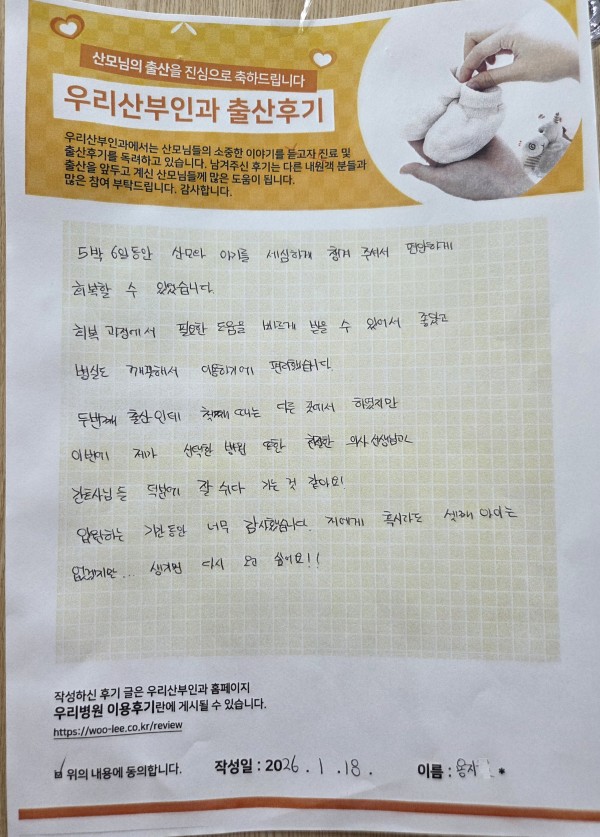 산모님의 출산을 진심으로 축하드립니다
우리산부인과 출산후기
우리산부인과에서는 산모님들의 소중한 이야기를 듣고자 진료 및
출산후기를 독려하고 있습니다. 남겨주신 후기는 다른 내원객 분들과
출산을 앞두고 계신 산모님들께 많은 도움이 됩니다.
많은 참여 부탁드립니다. 감사합니다.
5박 6일동안 산모와 아기를 세심하게 챙겨 주셔서 편안하게
회복할 수 있었습니다.
회복 과정에서 필요한 도움을 빠르게 받을 수 있어서 좋았고
병실도 깨끗해서 이용하기에 편리했습니다.
두번째 출산인데 첫째 때는 다른 곳에서 하였지만
이번에 제가 선택한 병원 또한 친절한 의사선생님과
간호사님들 덕분에 잘 쉬다 가는 것 같아요!
입원하는 기간동안 너무 감사했습니다. 저에게 혹시라도 셋째 아이는
없겠지만... 생기면 다시 오고 싶어요!!
작성하신 후기 글은 우리산부인과 홈페이지
우리병원 이용후기란에 게시될 수 있습니다.
https://woo-lee.co.kr/review
위의 내용에 동의합니다. 작성일 : 2026. 1. 18. 이름 : 용자 *